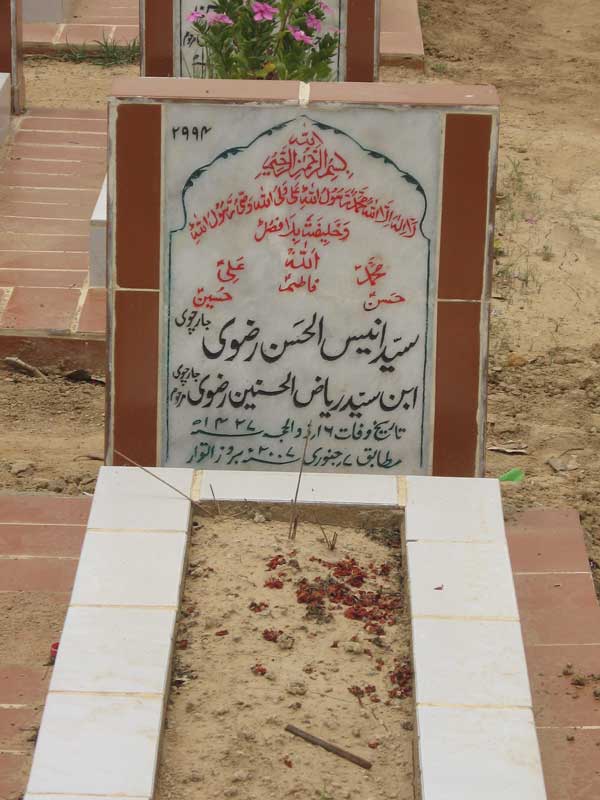 ۲۹۹۴
بسم اللہ الرحمن الرحیم
لا الہ الا اللہ محمد رسول اللہ علی ولی اللہ وصی رسول اللہ
و خلیفتہ بلا فصل
اللہ
محمد علی
فاطمہ
حسن حسین
سید انیس الحسن رضوی جارچوی
ابن سید ریاض الحسنین رضوی جارچوی مرحوم
تاریخ وفات ۱۶ ذوالحجہ ۱۴۲۷ھ
مطابق ۷ جنوری ۲۰۰۷ء بروز اتوار